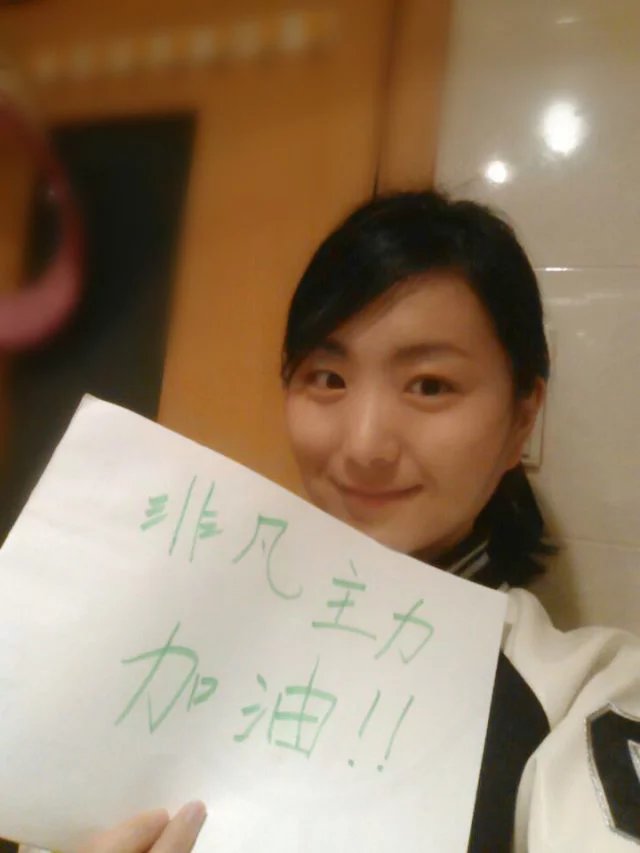 非凡主力
加油!!